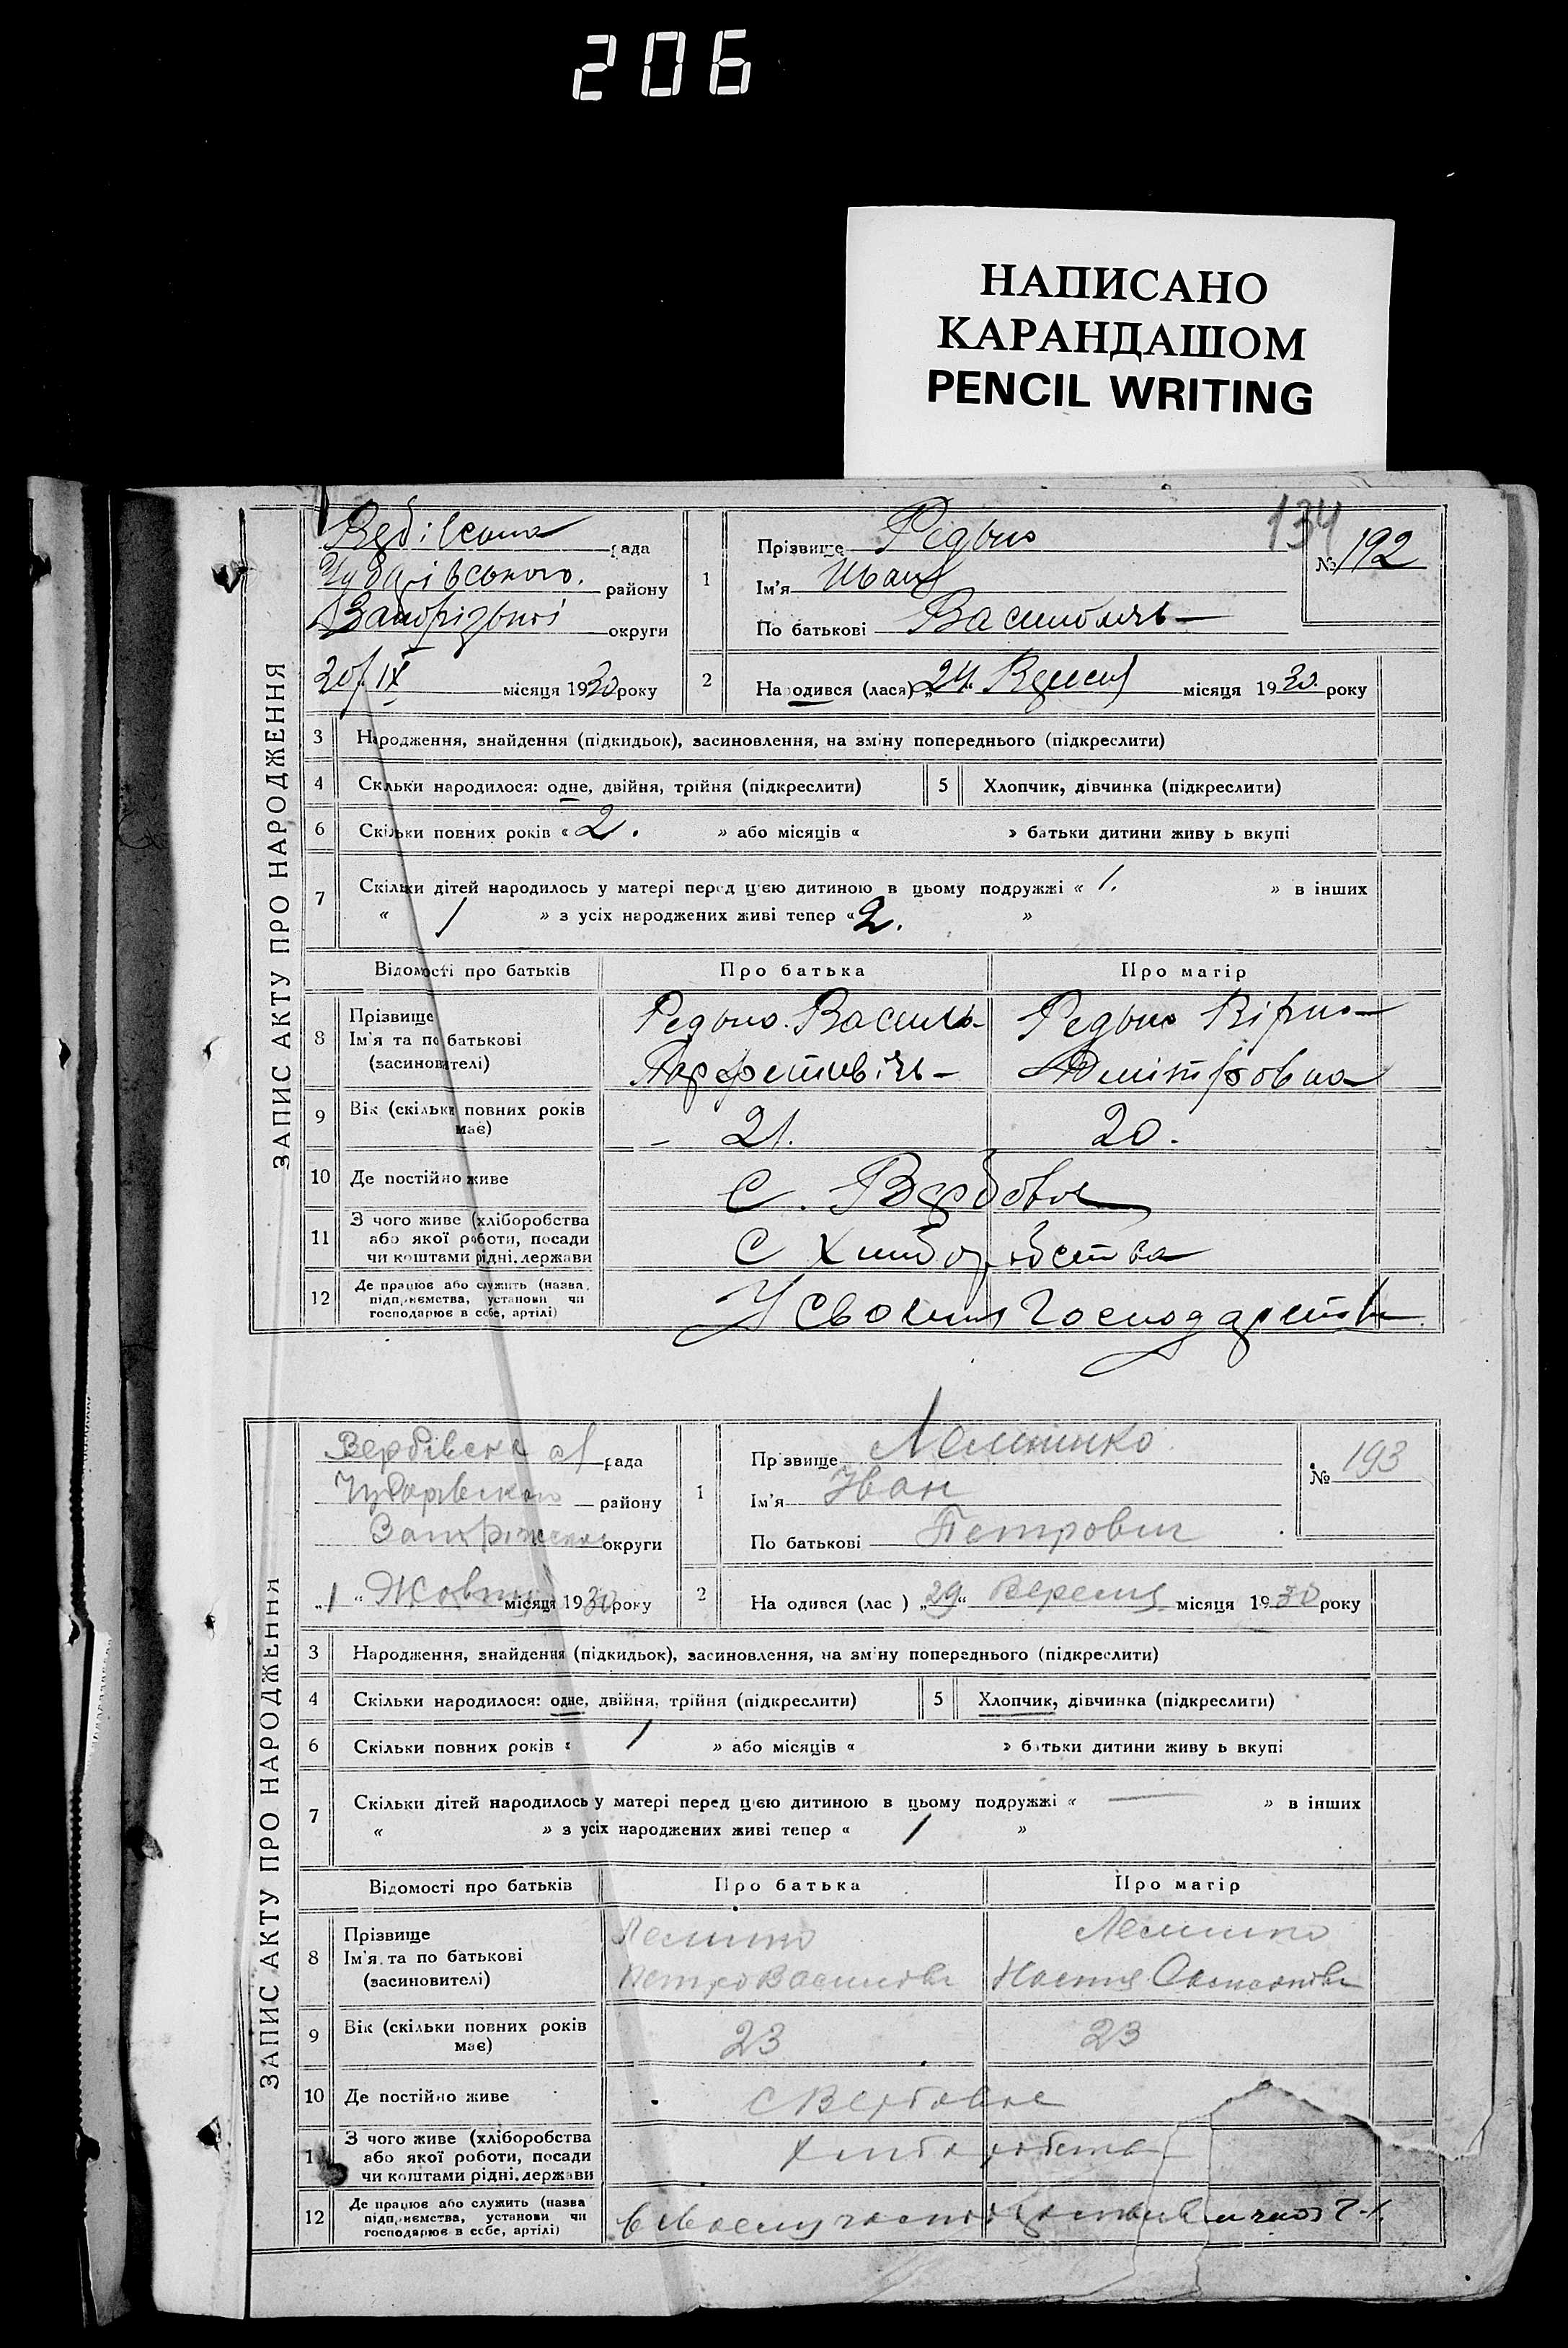 206
НАПИСАНО
КАРАНДАШОМ
PENCIL WRITING
134
ЗАПИС АКТУ ПРО НАРОДЖЕННЯ
рада
району
округи
20/IX місяця 1930 року
1 Прізвище Редько
Ім'я Иван
По батькові
№ 192
2 Народився (лася) „24“ місяця 1930 року
3 Народження, знайдення (підкидьок), засиновлення, на зміну попереднього (підкреслити)
4 Скільки народилося: одне, двійня, трійня (підкреслити) 5 Хлопчик, дівчинка (підкреслити)
6 Скільки повних років « 2. » або місяців « » батьки дитини живуть вкупі
7 Скільки дітей народилось у матері перед цією дитиною в цьому подружжі « 1. » в інших
« / » з усіх народжених живі тепер « 2. »
Відомості про батьків Про батька Про матір
8 Прізвище Ім'я та по батькові (засиновителі)
Редько Василь Редько
9 Вік (скільки повних років має) 21. 20.
10 Де постійно живе С. Вербове
11 З чого живе (хліборобства або якої роботи, посади чи коштами рідні, держави
С Хлиборобства
12 Де працює або служить (назва підприємства, установи чи господарює в себе, артілі)
У
ЗАПИС АКТУ ПРО НАРОДЖЕННЯ
Вербівська рада
Чубарівского району
округи
„1“ Жовтня місяця 1930 року
1 Прізвище
Ім'я Іван
По батькові Петрович
№ 193
2 Народився (лас ) „29“ Вересня місяця 1930 року
3 Народження, знайдення (підкидьок), засиновлення, на зміну попереднього (підкреслити)
4 Скільки народилося: одне, двійня, трійня (підкреслити) 5 Хлопчик, дівчинка (підкреслити)
6 Скільки повних років « / » або місяців « » батьки дитини живуть вкупі
7 Скільки дітей народилось у матері перед цією дитиною в цьому подружжі « — » в інших
« » з усіх народжених живі тепер « / »
Відомості про батьків Про батька Про матір
8 Прізвище Ім'я та по батькові (засиновителі)
Петро Настя
9 Вік (скільки повних років має) 23 23
10 Де постійно живе С Вербове
11 З чого живе (хліборобства або якої роботи, посади чи коштами рідні, держави
Хліборобства
12 Де працює або служить (назва підприємства, установи чи господарює в себе, артілі)